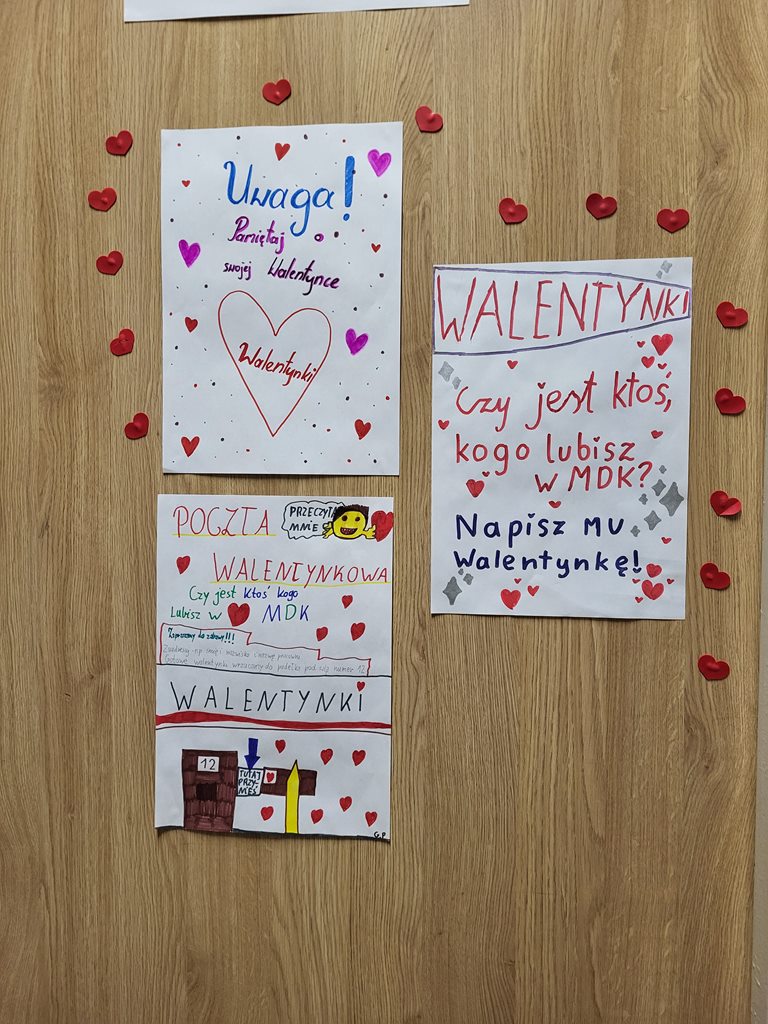 Uwaga!
Pamiętaj o
swojej Walentynce
Walentynki
WALENTYNKI
Czy jest ktoś,
kogo lubisz
w MDK?
Napisz mu
Walentynkę!
POCZTA
PRZECZYTAJ
MNIE
WALENTYNKOWA
Czy jest Ktoś kogo
Lubisz w MDK
Zapraszamy do zabawy!!!
walentynki wrzucamy do pudełka pod salą numer 12
WALENTYNKI
12
TUTAJ
PRZY-
NIEŚ
G.P